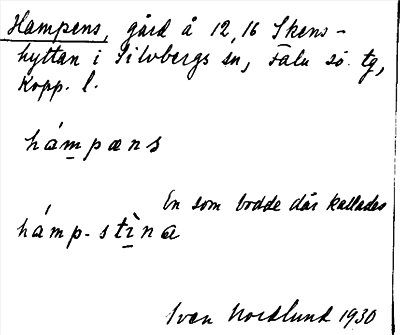 Hampens, gård å 12,16 Skens-
hyttan i Silvbergs sn, Falu sö. tg,
Kopp. l.
hámpæns
En som bodde där kallades
hámp-stìna
Sven Nordlund 1930